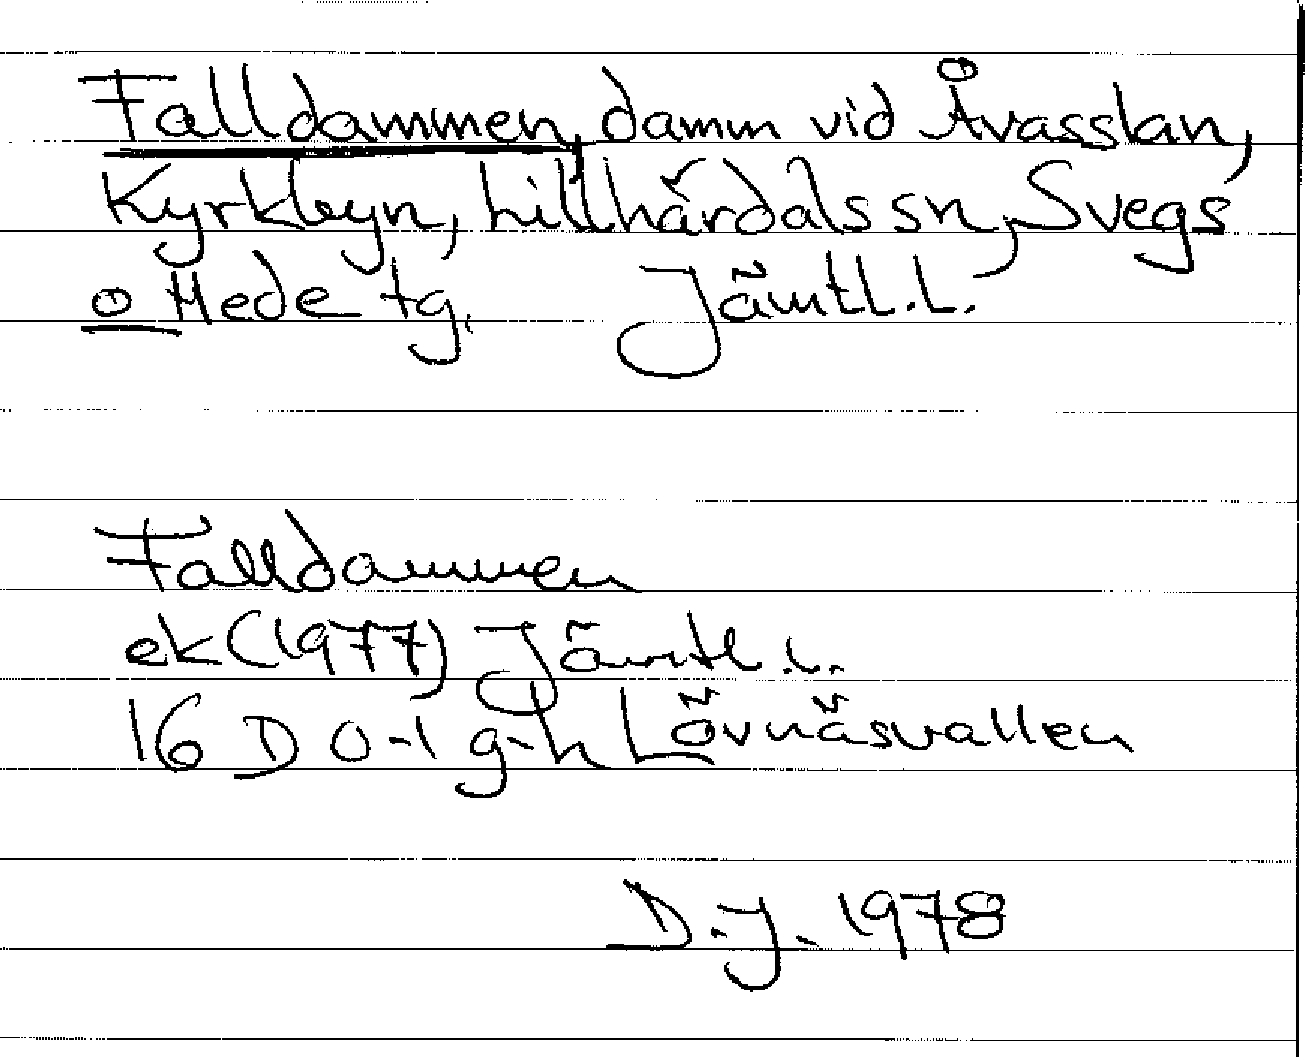 Falldammen, damm vid Åvasslan,
Kyrkbyn, Lillhärdals sn, Svegs
o Hede tg. Jämtl.L.
Falldammen
ek (1977) Jämtl.L.
16 D 0-1 g-h Lövnäsvallen
D.J. 1978